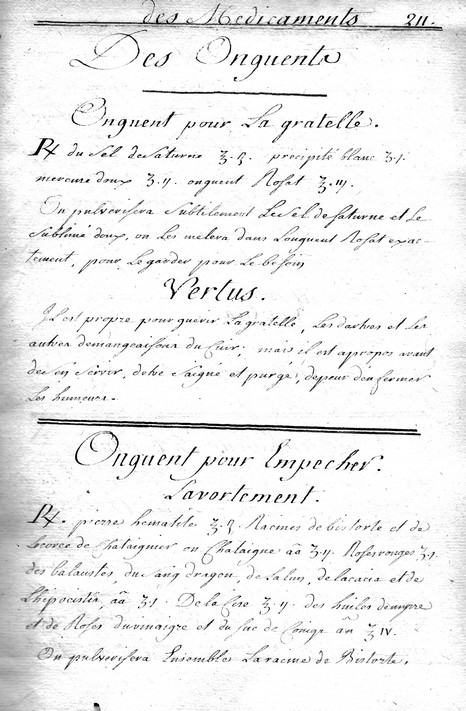 des Medicaments 211.
Des Onguents
Onguent pour La gratelle.
℞ du Sel de Saturne ʒ.ß. precipité blanc ʒ.j.
mercure doux ʒ.ij. onguent Rosat ℥.iij.
On pulverisera Subtilement Le Sel de Saturne et Le
Sublimé doux, on Les melera dans Longuent Rosat exac-
tement, pour Le garder pour Le besoin
Vertus.
JL est propre pour guerir La gratelle, Les dartres et Les
autres demangeaisons du Cuir; mais il est apropos avant
de s'en servir, detre Saigné et purgé, depeur d'enfermer
Les humeurs.
Onguent pour Empecher.
Lavortement.
℞. pierre hematite ℥.ß. Racines de bistorte et de
Lecorce de Chataignier ou Chataigne āā ʒ.ij. Roses rouges ʒ.j.
des balaustes, du Sang dragon, de Lalun, de Lacacia et de
Lhipocistis, āā ʒ.j. De La Cire ℥.ij. des huiles de
et de Roses du vinaigre et du Suc de āā ℥ IV.
On pulverisera Ensemble La racine de Bistorte,